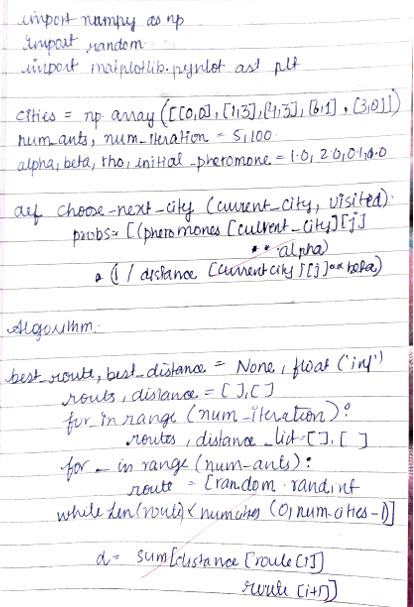 import numpy as np
import random
import matplotlib.pyplot ast plt
cities = np array ([[0,0], [1,3], [4,3], [6,1], [3,0]])
num_ants, num_iteration = 5,100
alpha, beta, rho, initial_pheromone = 1.0, 2.0, 0.1, 0.0
def choose-next-city (current_city, visited):
probs = [(pheromones [current_city][j]
** alpha)
* (1 / distance [current city][j] ** beta)
Algorithm.
best_route, best_distance = None, float ('inf')
routs, distance = [], []
for_in range (num_iteration):
routes, distance_list = [], []
for _ in range (num-ants):
route = [random. randint
while len(route) < numcities (0, num-cities-1)]
d = sum[distance [route [i]]
route [i+1])